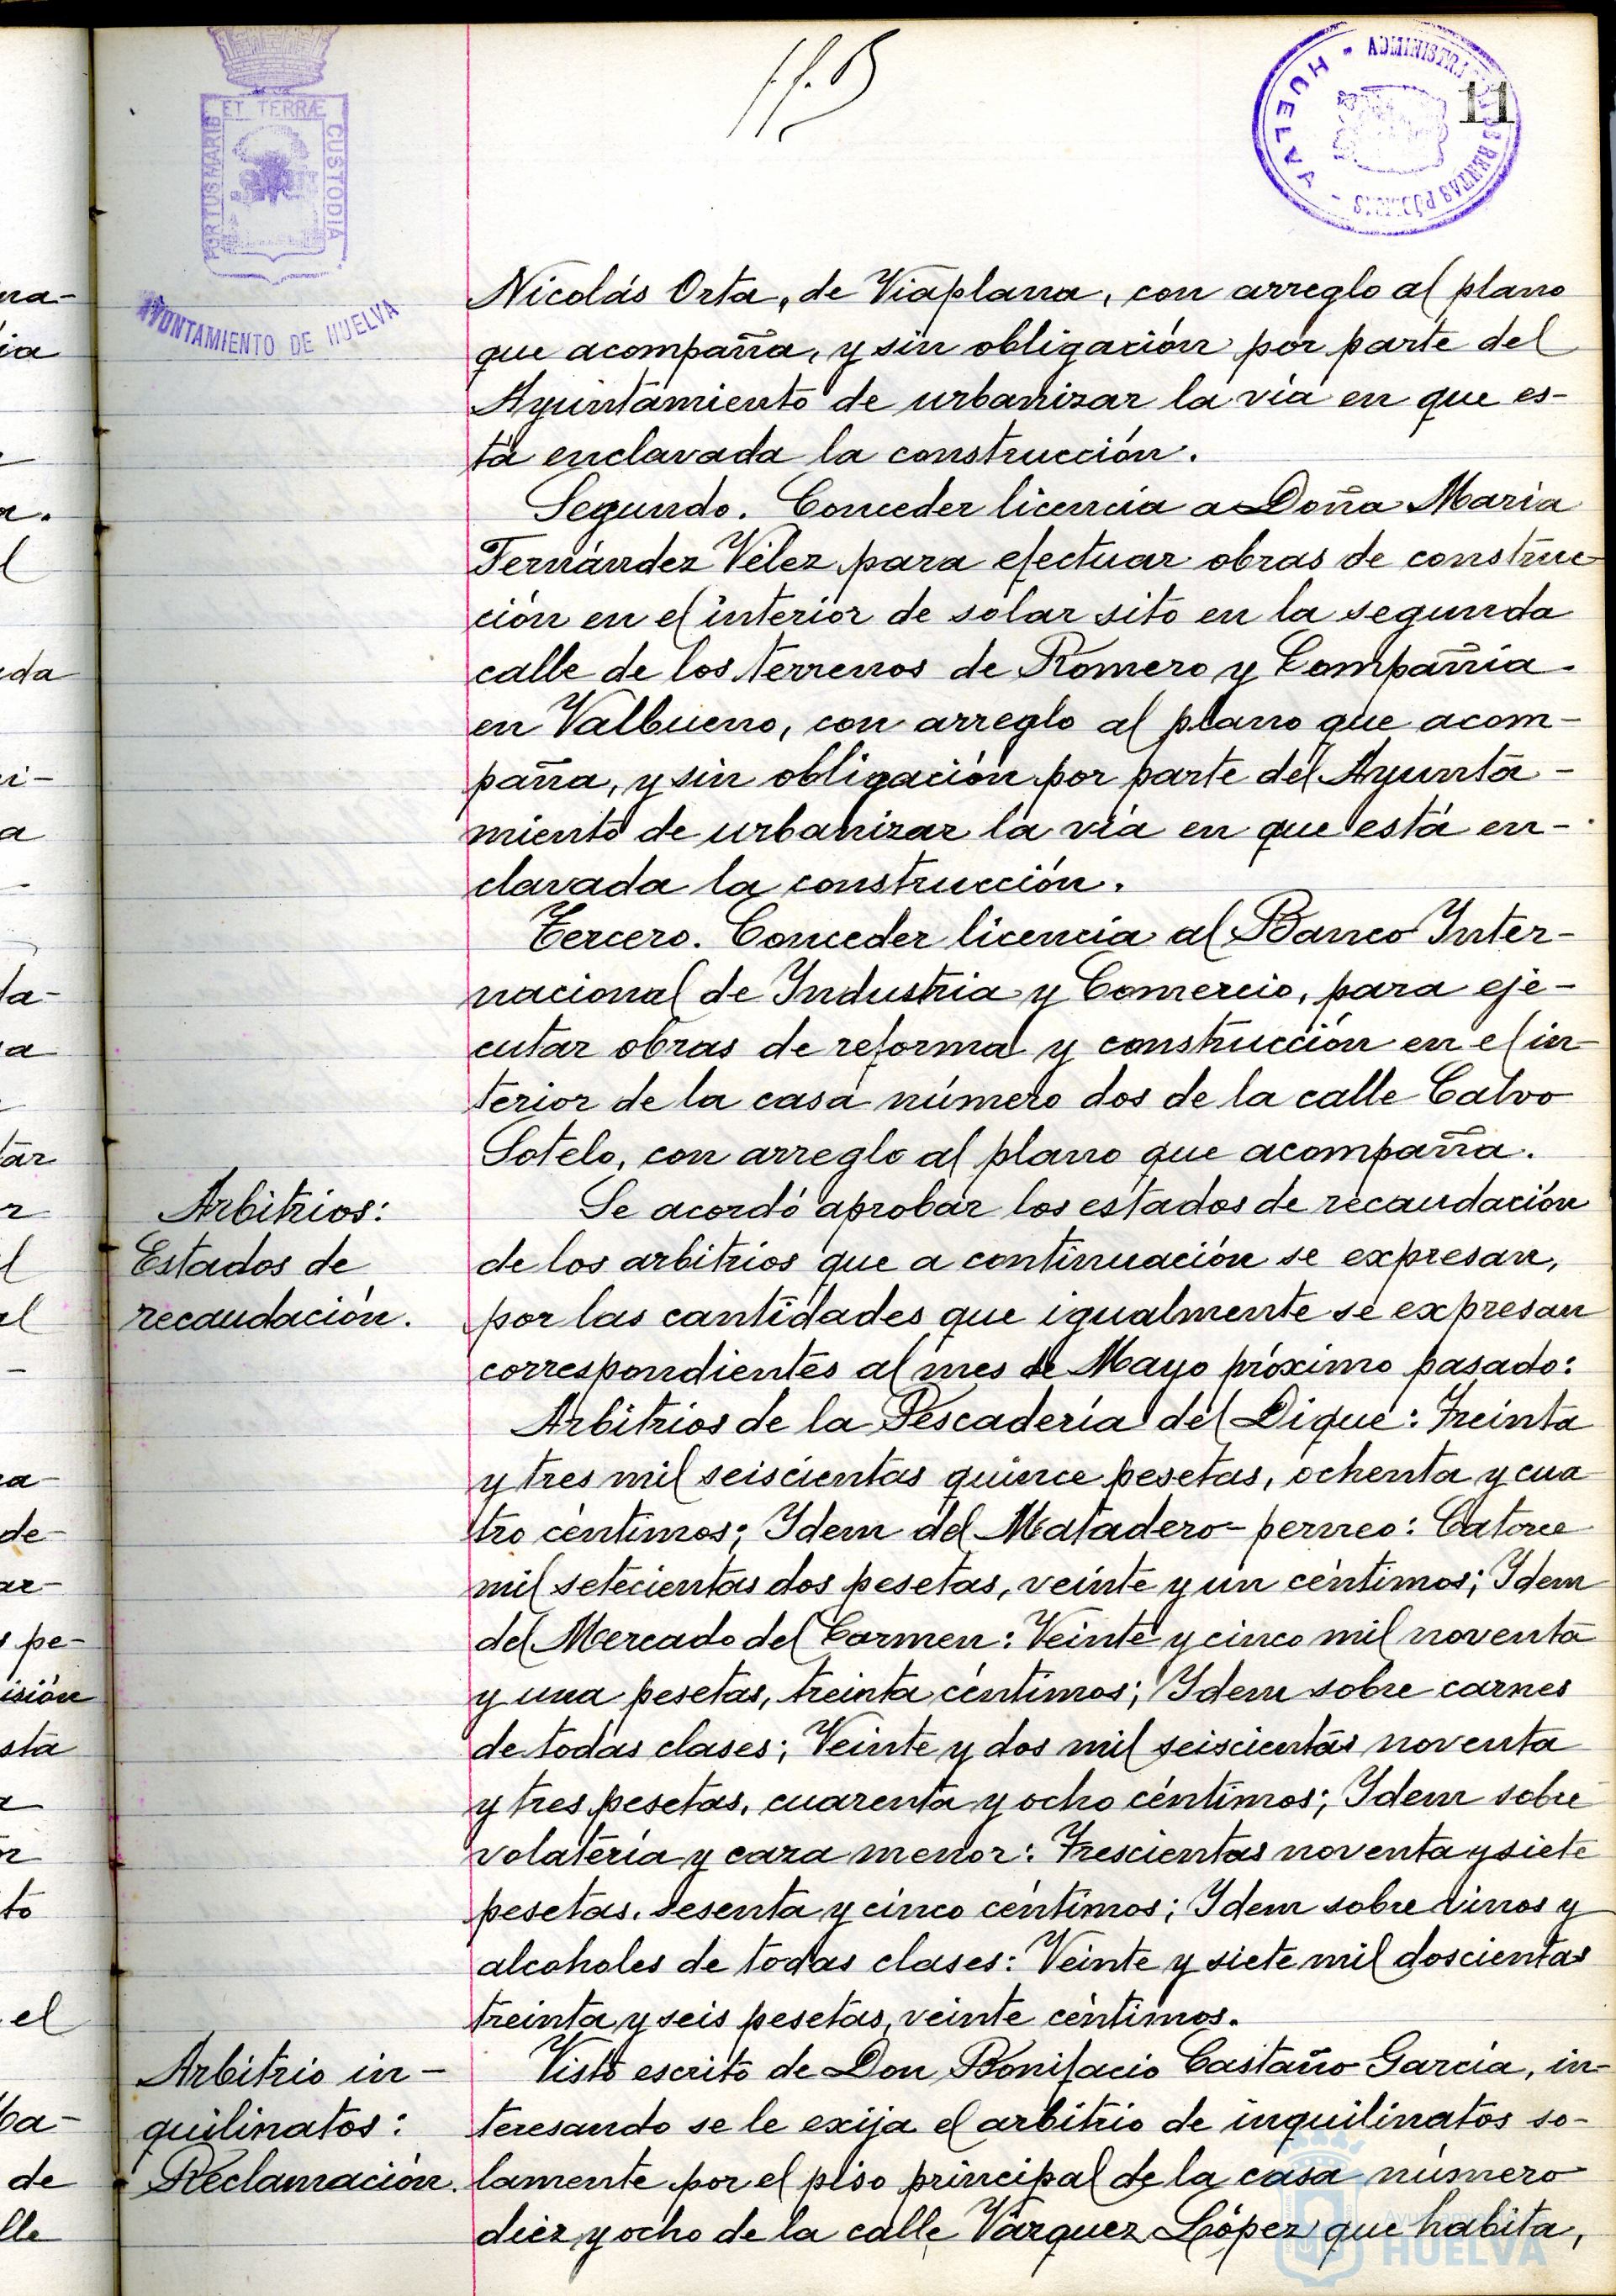 11
ADMINISTRA
RENTAS PÚBLICAS
HUELVA
PORTUS MARIS
ET TERRÆ
CUSTODIA
AYUNTAMIENTO DE HUELVA
Nicolás Orta, de Viaplana, con arreglo al plano
que acompaña, y sin obligación por parte del
Ayuntamiento de urbanizar la vía en que es-
tá enclavada la construcción.
Segundo. Conceder licencia a Doña María
Fernández Vélez para efectuar obras de construc
ción en el interior de solar sito en la segunda
calle de los terrenos de Romero y Compañía
en Valbueno, con arreglo al plano que acom-
paña, y sin obligación por parte del Ayunta-
miento de urbanizar la vía en que está en-
clavada la construcción.
Tercero. Conceder licencia al Banco Inter-
nacional de Industria y Comercio, para eje-
cutar obras de reforma y construcción en el in-
terior de la casa número dos de la calle Calvo
Sotelo, con arreglo al plano que acompaña.
Arbitrios:
Estados de
recaudación.
Se acordó aprobar los estados de recaudación
de los arbitrios que a continuación se expresan,
por las cantidades que igualmente se expresan
correspondientes al mes de Mayo próximo pasado:
Arbitrios de la Pescadería del Dique: Treinta
y tres mil seiscientas quince pesetas, ochenta y cua
tro céntimos; Idem del Matadero-perneo: Catorce
mil setecientas dos pesetas, veinte y un céntimos; Idem
del Mercado del Carmen: Veinte y cinco mil noventa
y una pesetas, treinta céntimos; Idem sobre carnes
de todas clases; Veinte y dos mil seiscientas noventa
y tres pesetas, cuarenta y ocho céntimos; Idem sobre
volatería y caza menor: Trescientas noventa y siete
pesetas, sesenta y cinco céntimos; Idem sobre vinos y
alcoholes de todas clases: Veinte y siete mil doscientas
treinta y seis pesetas, veinte céntimos.
Arbitrio in-
quilinatos:
Reclamación.
Visto escrito de Don Bonifacio Castaño García, in-
teresando se le exija el arbitrio de inquilinatos so-
lamente por el piso principal de la casa número
diez y ocho de la calle Vázquez López que habita,
Ayuntamiento de
HUELVA